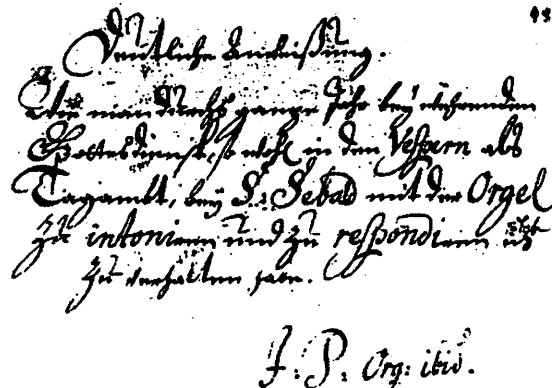 Deutliche Anweißung.
Wie man durchs gantze Jahr bey wehrenden
Gottesdienst, so wohl in den Vespern als
Tagambt, bey S: Sebald mit der Orgel
zu intoniren und zu respondiren
zu verhalten habe.
J: P: Org: ibid.